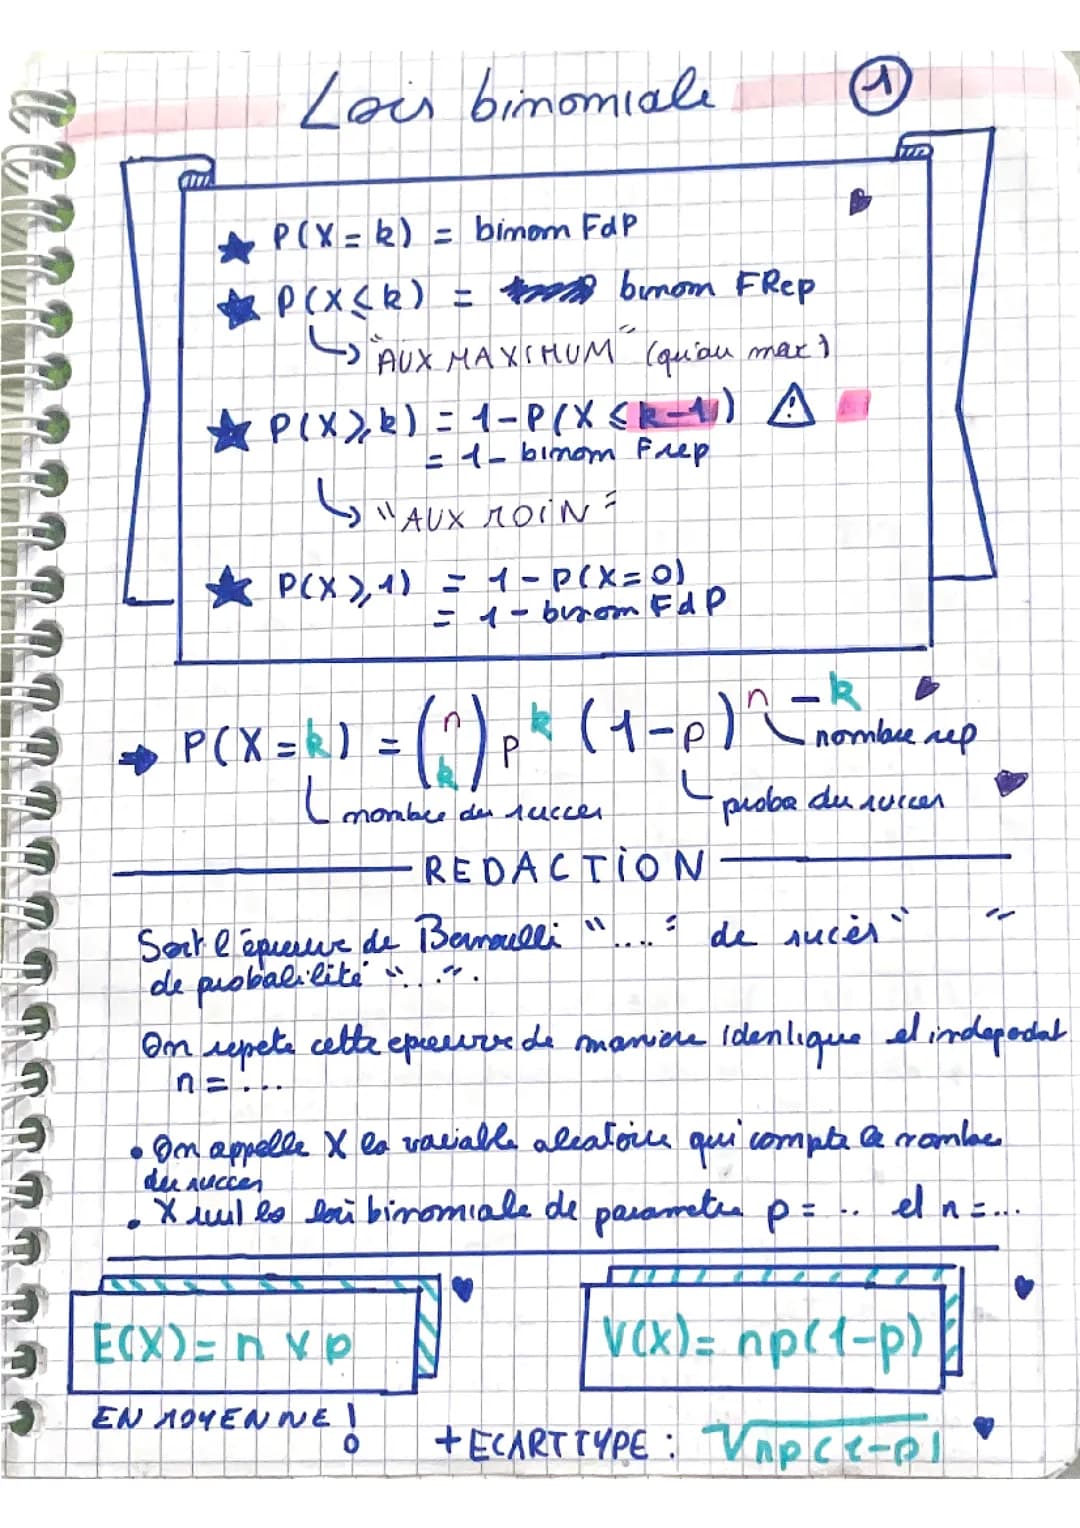 Lois binomiale ①
★ P(X=k) = binom FdP
★ P(X≤k) = binom FRep
↳ "AUX MAXIMUM" (qu'au max)
★ P(X≥k) = 1-P(X≤k-1) ⚠
= 1- binom Frep
↳ "AUX MOIN"
★ P(X≥1) = 1-P(X=0)
= 1- binom FdP
→ P(X=k) = (n k) p^k (1-p)^n-k
nombre rep
nombre du succes
proba du succes
REDACTION
Soit l'épreuve de Bernoulli "...." de sucès " "
de probabilité "...".
On repete cette epreuve de maniere identique et indepedat
n = ...
• On appelle X la variable aleatoire qui compte le nombre
du succes
• X suit la loi binomiale de parametre p = .. et n = ...
E(X) = n x p
V(X) = np(1-p)
EN MOYENNE !
+ ECART TYPE : √np(1-p)